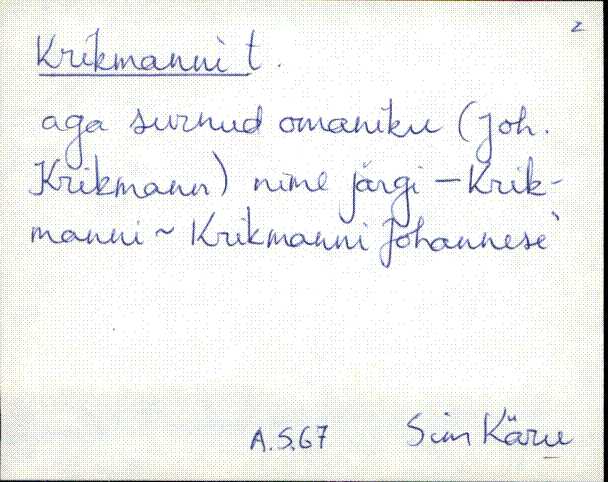 2
Krikmanni t.
aga surnud omaniku (Joh.
Krikmann) nime järgi – Krik-
manni ~ Krikmanni Johannese`
A.S.67 Siim Käru